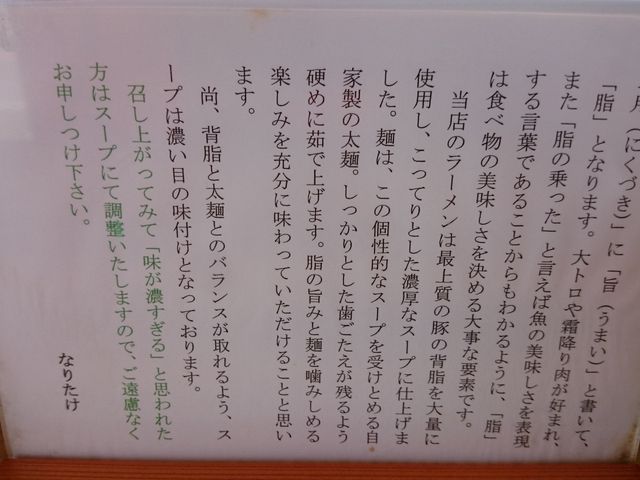 月(にくづき)」に「旨(うまい)」と書いて、
「脂」となります。大トロや霜降り肉が好まれ、
また「脂の乗った」と言えば魚の美味しさを表現
する言葉であることからもわかるように、「脂」
は食べ物の美味しさを決める大事な要素です。
当店のラーメンは最上質の豚の背脂を大量に
使用し、こってりとした濃厚なスープに仕上げま
した。麺は、この個性的なスープを受けとめる自
家製の太麺。しっかりとした歯ごたえが残るよう
硬めに茹で上げます。脂の旨みと麺を噛みしめる
楽しみを充分に味わっていただけることと思い
ます。
尚、背脂と太麺とのバランスが取れるよう、ス
ープは濃い目の味付けとなっております。
召し上がってみて「味が濃すぎる」と思われた
方はスープにて調整いたしますので、ご遠慮なく
お申しつけ下さい。
なりたけ